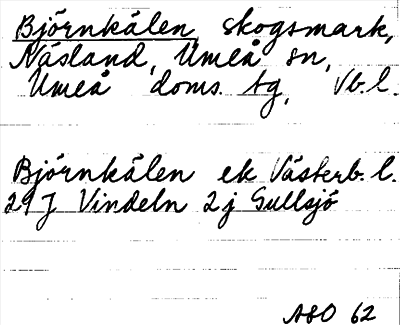 Björnkälen, skogsmark,
Näsland, Umeå sn,
Umeå doms. tg, Vb. l.
Björnkälen ek Västerb. l.
29 J Vindeln 2 j Gullsjö
ASO 62